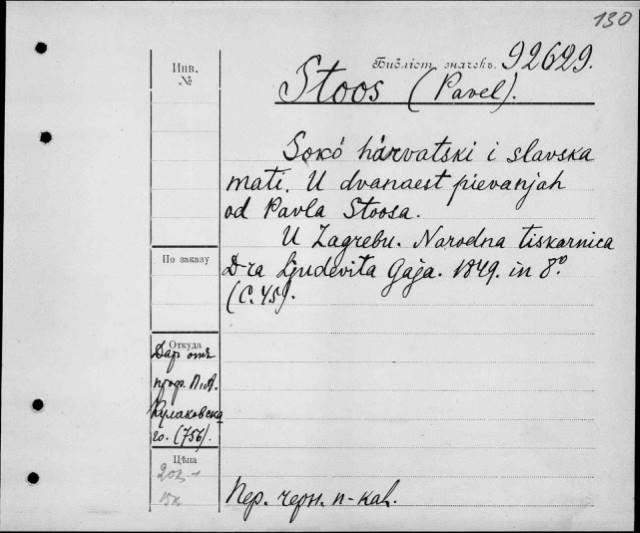 130
Инв.
№
Библіот. значекъ. 92629.
Stoos (Pavel).
Sokó hárvatski i slavska
mati. U dvanaest pievanjah
od Pavla Stoosa.
U Zagrebu. Narodna tiskarnica
Dra Ljudevita Gaja. 1849. in 8º.
(С. 45).
По заказу
Откуда
Даръ отъ
проф. П. А.
Кулаковска
го. (756).
Цѣна
Пер. черн. п-кал.